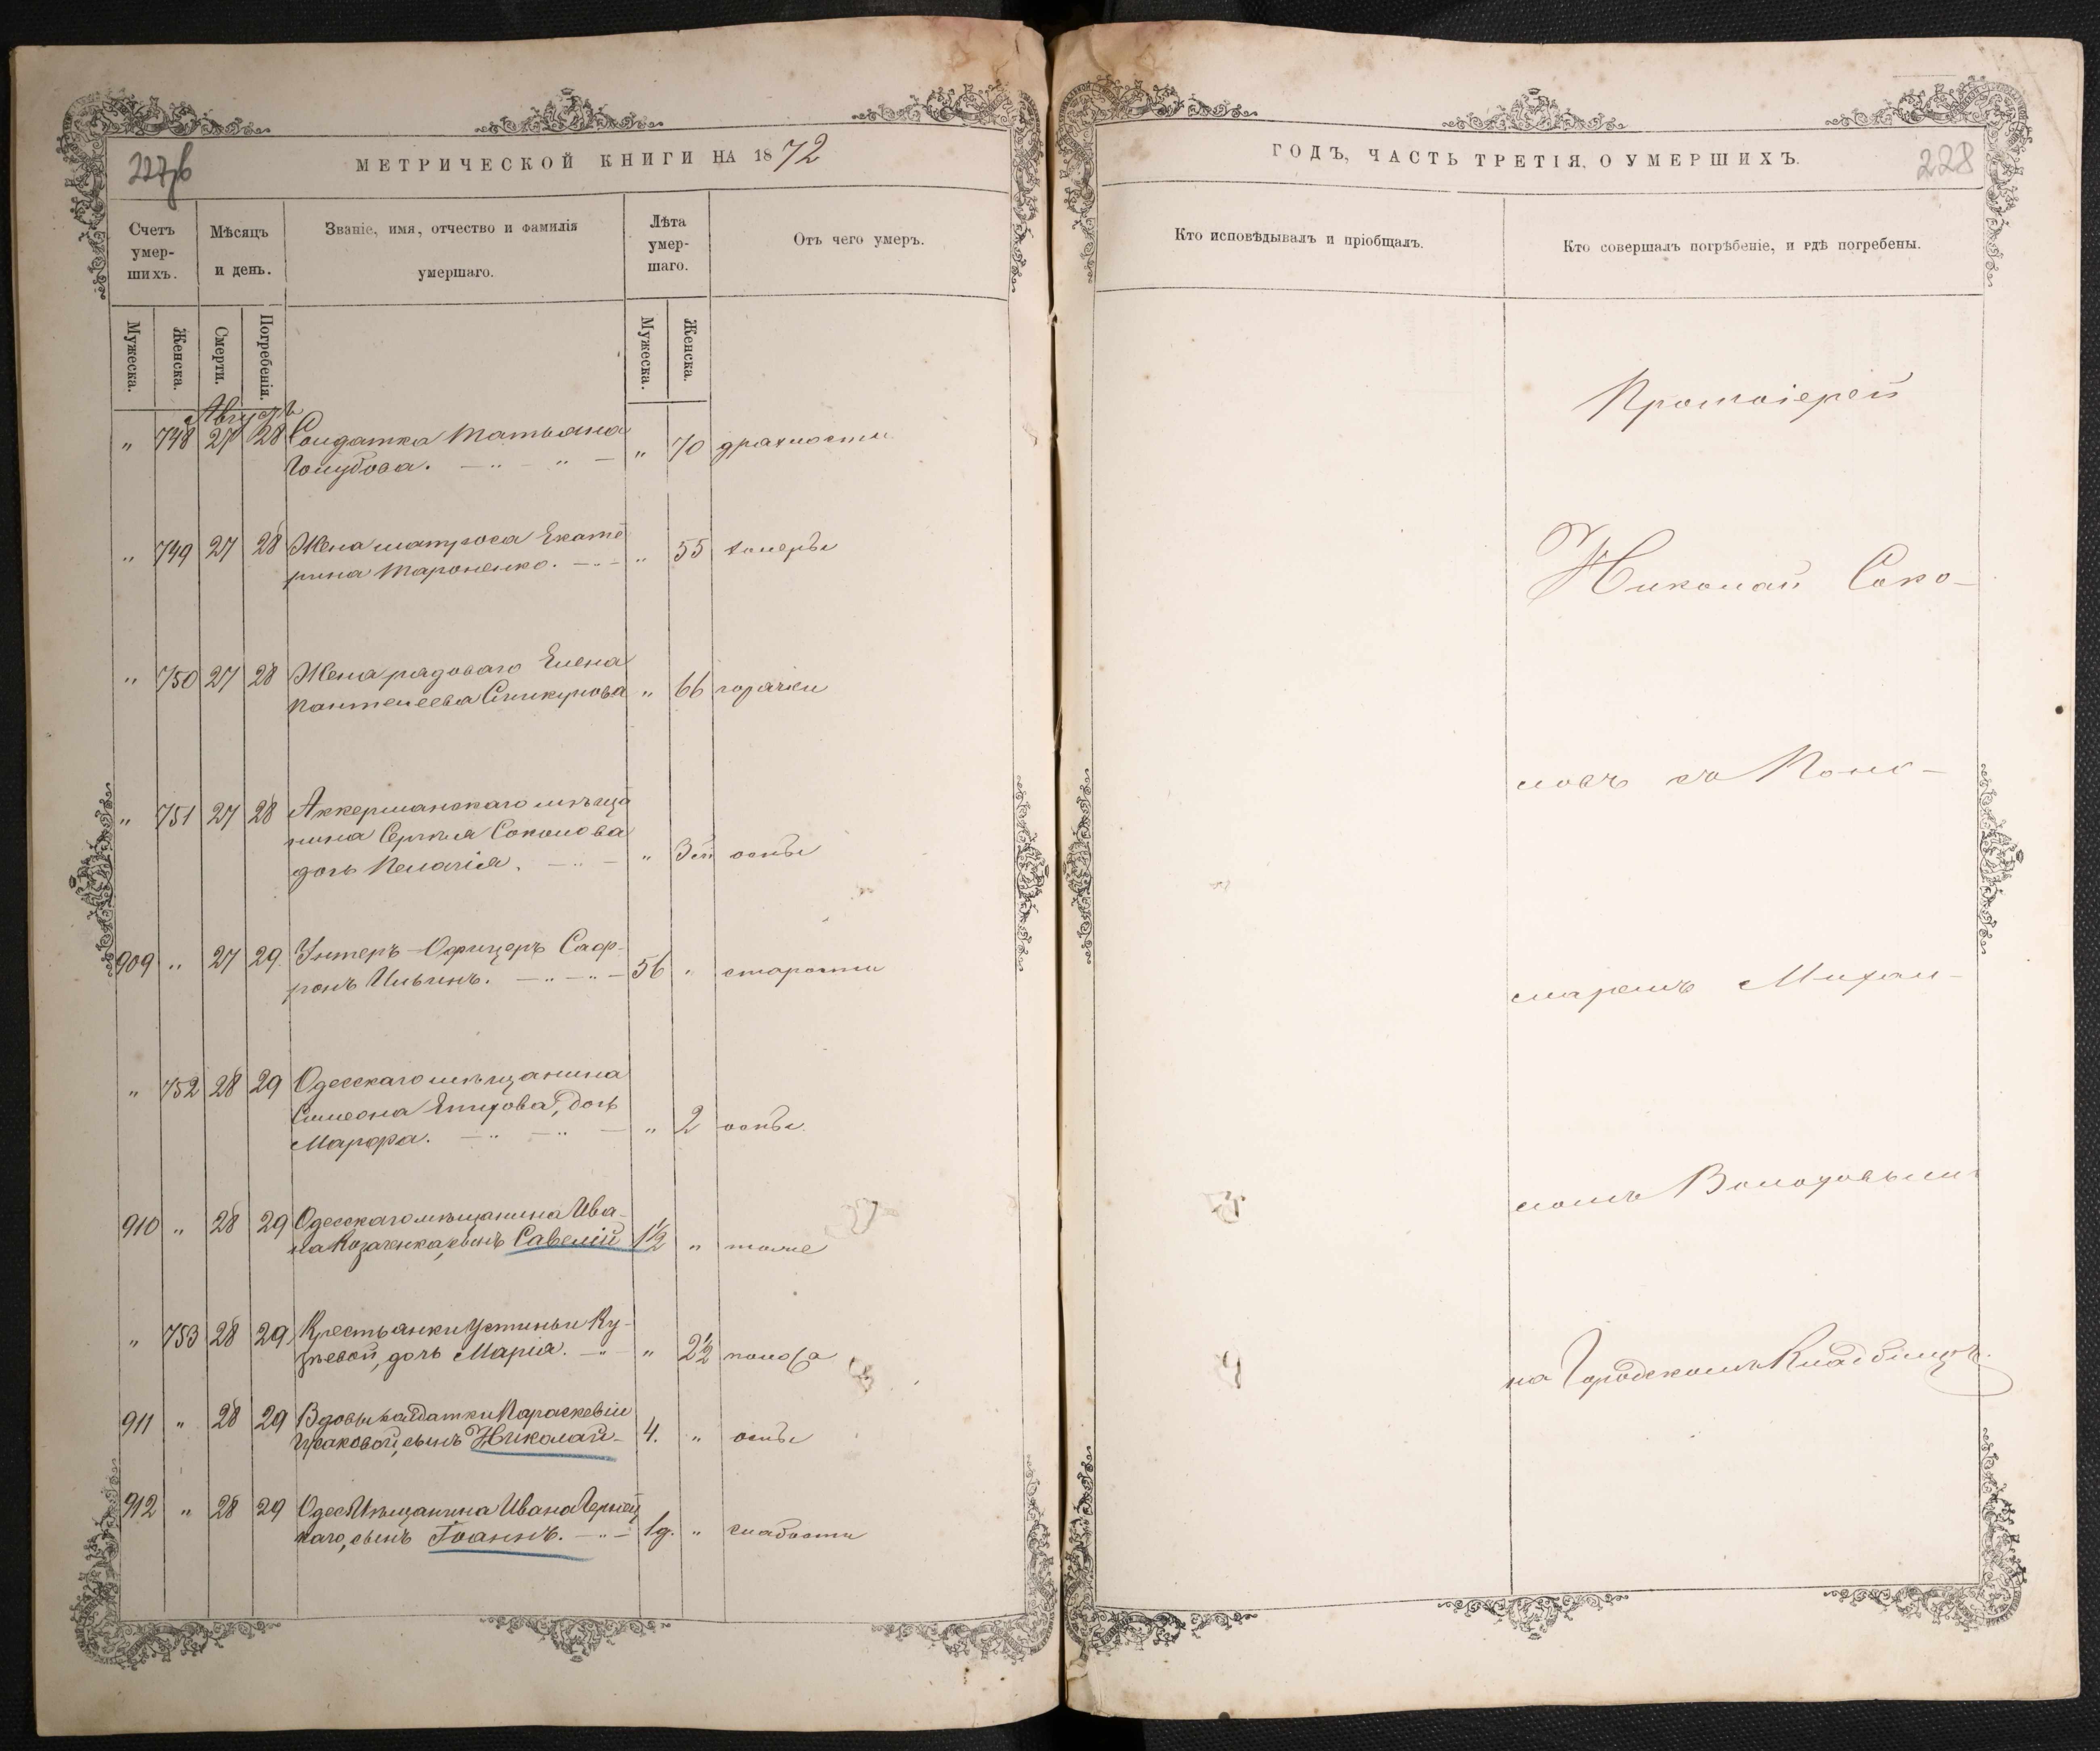 МЕТРИЧЕСКОЙ КНИГИ НА 1872
Счетъ умер-шихъ.
Мѣсяцъ и день.
Званіе, имя, отчество и фамилія умершаго.
Лѣта умер-шаго.
Отъ чего умеръ.
Мужеска.
Женска.
Смерти.
Погребенія.
Мужеска.
Женска.
Августъ
" 748 27 28 Солдатка Татьяна
Голубова. " 70 драхлости
" 749 27 28 Жена матроса Екате
рина Тароненко. " 55 холеры
" 750 27 28 Жена рядоваго Елена
Пантелеева " 66 горячки
" 751 27 28 Аккерманскаго мѣща
нина Сергѣя Соколова
дочь Пелагія. " оспы
909 " 27 29 Унтеръ-Офицеръ Саф-
ронъ Ильинъ. 56 " старости
" 752 28 29 Одесскаго мѣщанина
Симеона дочь
Марфа. " 2 оспы
910 " 28 29 Одесскаго мѣщанина Ива-
на Козаченка, сынъ Савелій 1½ " тоже
" 753 28 29 Крестьянки Устиньи Ку-
зьевой, дочь Марія. " 2½ поноса
911 " 28 29 Вдовы солдатки Параскевіи
сынъ Николай 4. " оспы
912 " 28 29 Одес. Мѣщанина Ивана Чернец
каго, сынъ Іоаннъ. 1д. " слабости
ГОДЪ, ЧАСТЬ ТРЕТІЯ, О УМЕРШИХЪ.
228
Кто исповѣдывалъ и пріобщалъ.
Кто совершалъ погрѣбеніе, и гдѣ погребены.
Протоіерей
Николай Соко-
ловъ съ Поно-
маремъ Михаи-
ломъ
на Городскомъ Кладбищѣ.